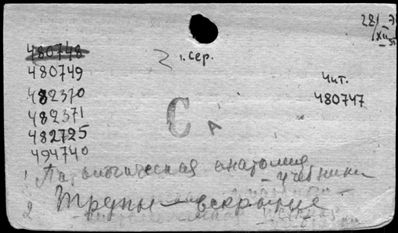 28/
XII
480748
1. сер.
480749
Чит.
482370
480747
482371
482725
С
494740
1 Патологическая анатомия - учебники
2 Трупы - вскрытие